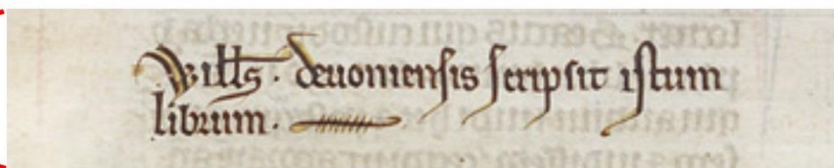 Willſ. deuonienſis ſcripſit iſtum
librum.